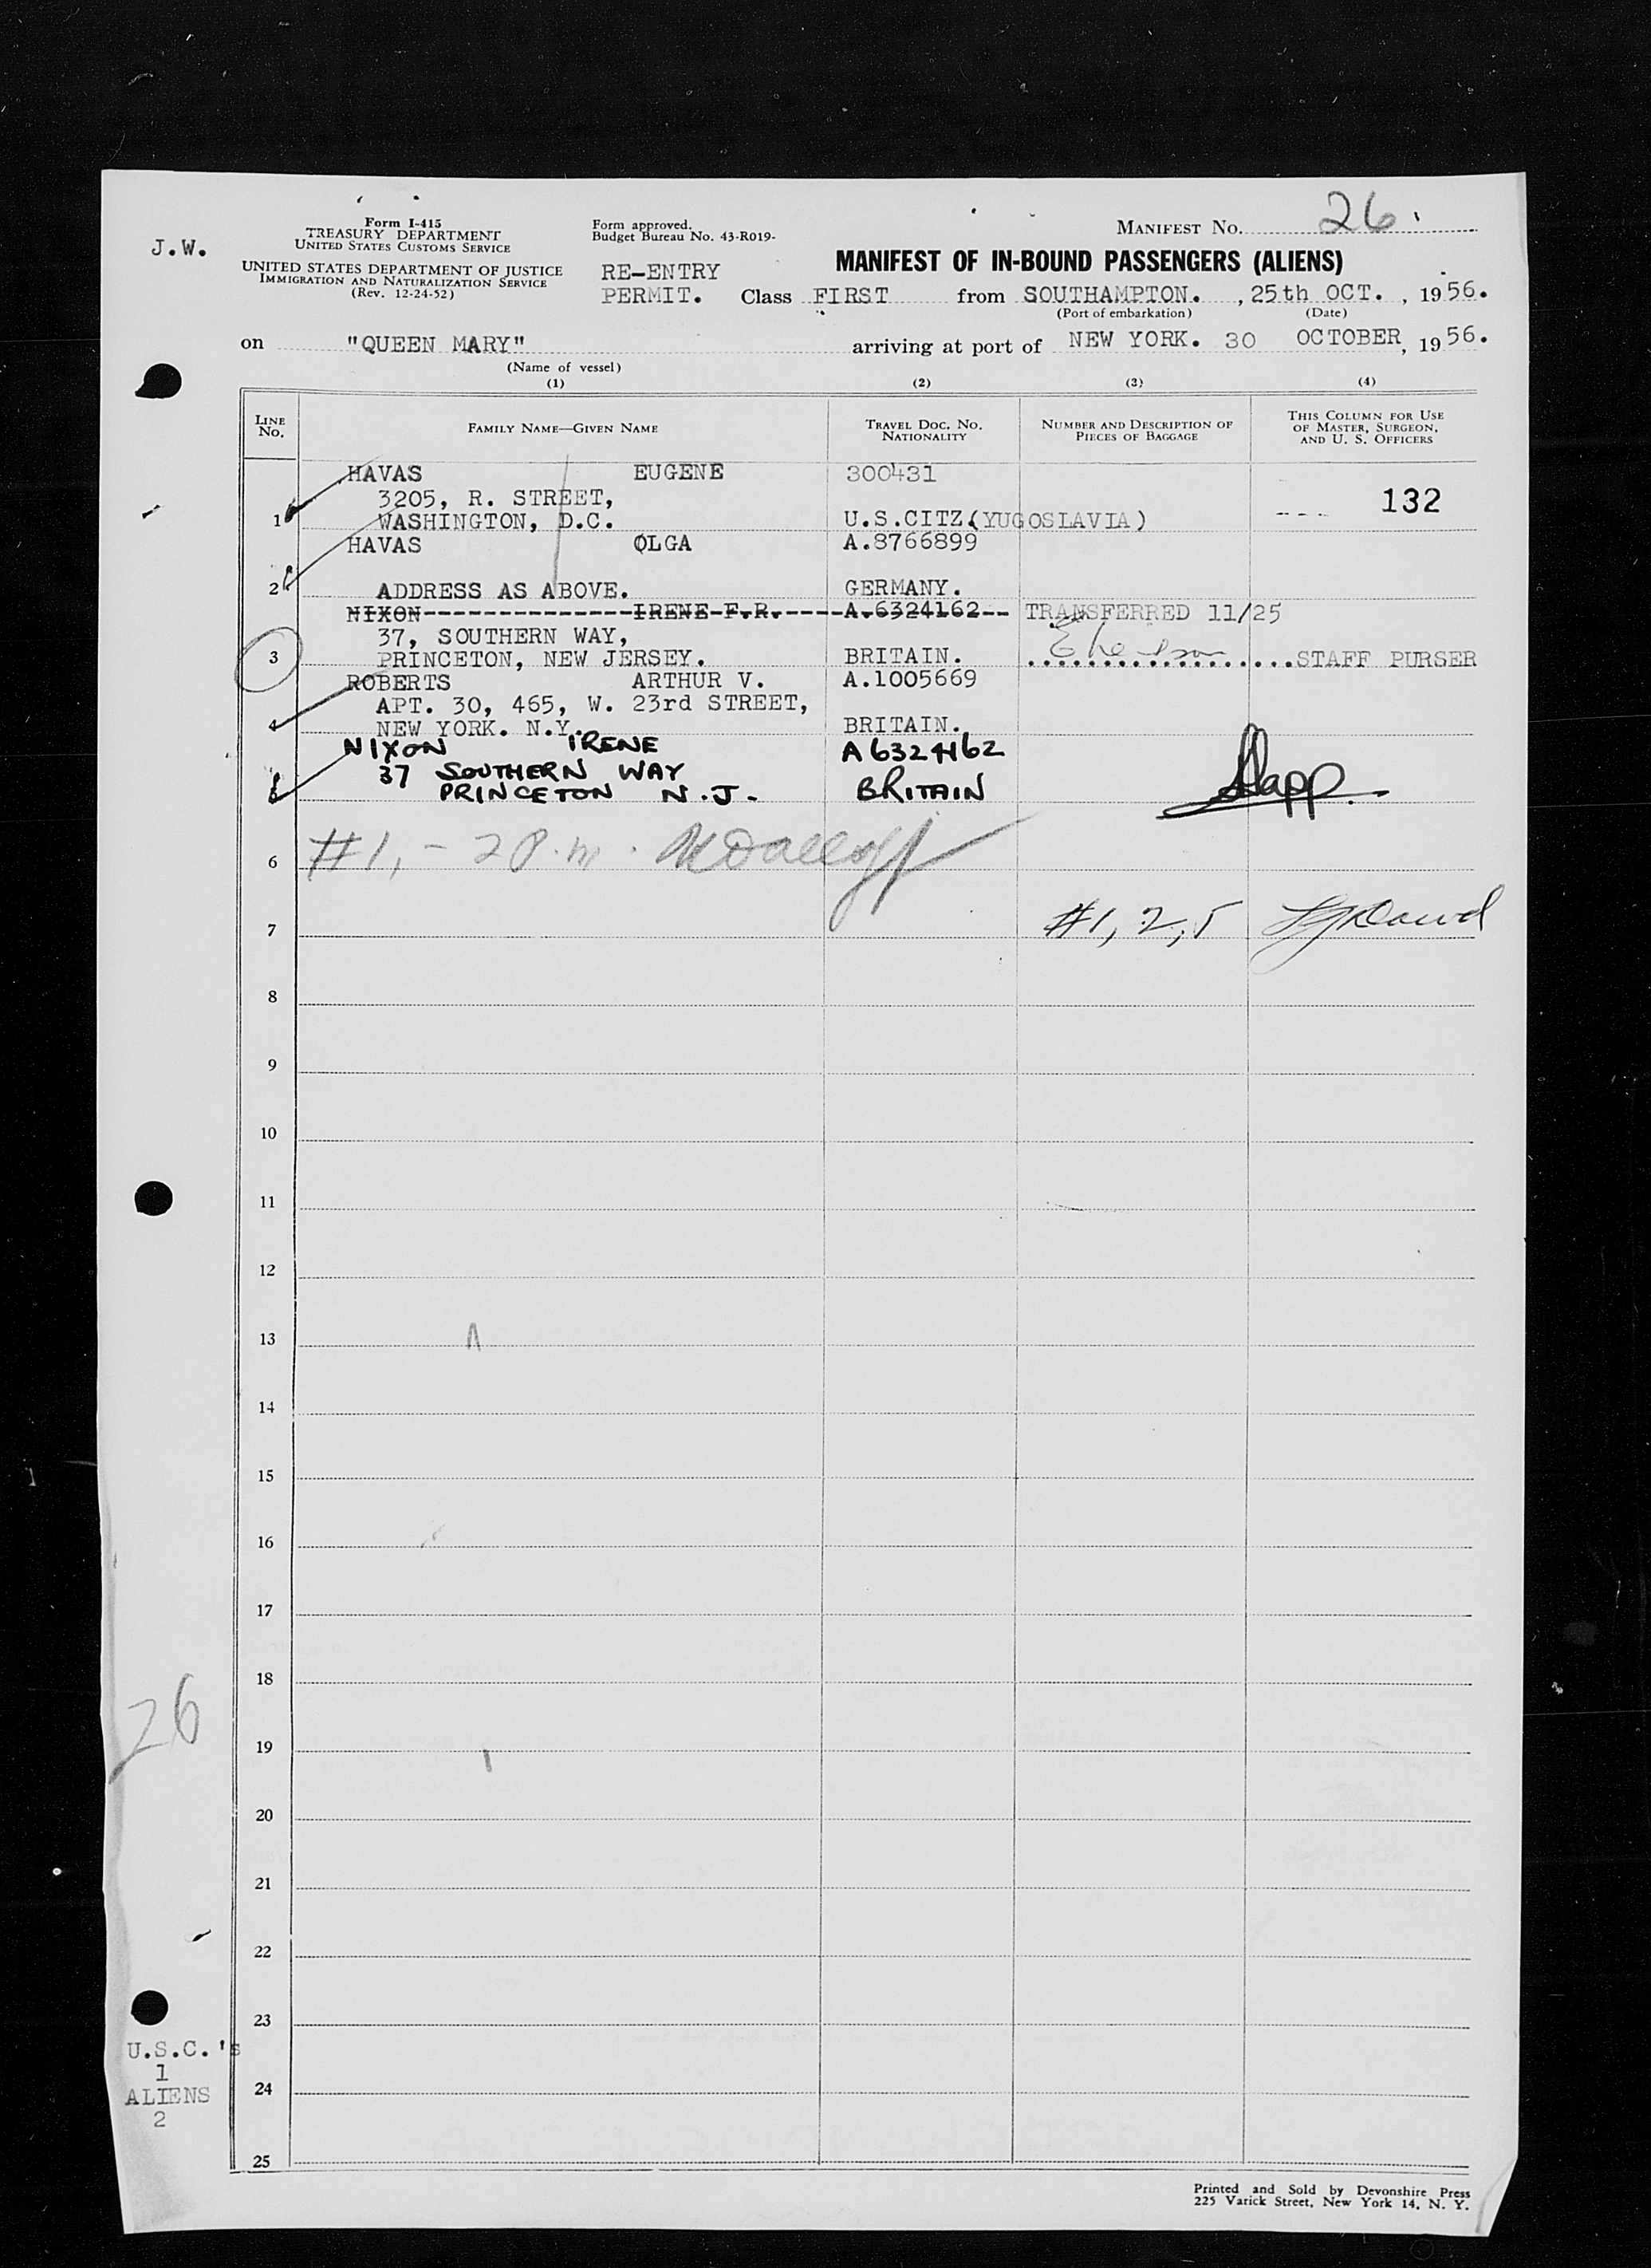 J.W.
Form I-415
TREASURY DEPARTMENT
UNITED STATES CUSTOMS SERVICE
UNITED STATES DEPARTMENT OF JUSTICE
IMMIGRATION AND NATURALIZATION SERVICE
(Rev. 12-24-52)
Form approved.
Budget Bureau No. 43-R019-
MANIFEST NO. 26
MANIFEST OF IN-BOUND PASSENGERS (ALIENS)
RE-ENTRY
PERMIT. Class FIRST from SOUTHAMPTON. , 25th OCT. , 1956.
(Port of embarkation) (Date)
on "QUEEN MARY" arriving at port of NEW YORK. 30 OCTOBER, 1956.
(Name of vessel)
(1) (2) (3) (4)
LINE NO. FAMILY NAME—GIVEN NAME TRAVEL DOC. NO. NATIONALITY NUMBER AND DESCRIPTION OF PIECES OF BAGGAGE THIS COLUMN FOR USE OF MASTER, SURGEON, AND U. S. OFFICERS
HAVAS EUGENE 300431
3205, R. STREET, --- 132
1 WASHINGTON, D.C. U.S.CITZ.(YUGOSLAVIA)
HAVAS OLGA A.8766899
2 ADDRESS AS ABOVE. GERMANY.
NIXON--------------IRENE-F.R.----A.6324162-- TRANSFERRED 11/25
37, SOUTHERN WAY,
3 PRINCETON, NEW JERSEY. BRITAIN. ....................STAFF PURSER
ROBERTS ARTHUR V. A.1005669
APT. 30, 465, W. 23rd STREET,
4 NEW YORK. N.Y. BRITAIN.
NIXON IRENE A6324162
37 SOUTHERN WAY
5 PRINCETON N.J. BRITAIN
6 #1, - 2 P.m.
7 #1, 2, 5
8
9
10
11
12
13
14
15
16
17
18
26
19
20
21
22
23
U.S.C.'s
1
ALIENS
2
24
25
Printed and Sold by Devonshire Press
225 Varick Street, New York 14, N. Y.